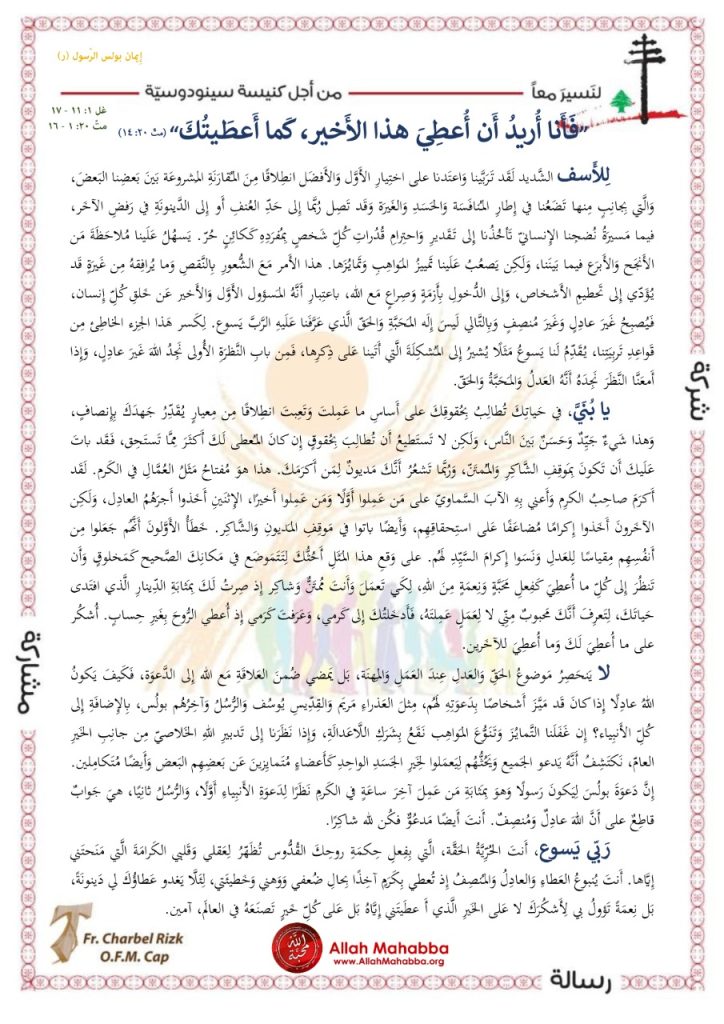 إيمان بولس الرّسول (ر)
لنَسيرَ معاً
من أجل كنيسة سينودوسيّة
غل ١: ١١ - ١٧
متّ ٢٠: ١ - ١٦
"فَأَنا أُريدُ أَن أُعطِيَ هذا الأَخير، كَما أَعطَيتُكَ" (متّ ٢٠: ١٤)
لِلأَسف الشَّديد لَقَد تَرَبَّينا وَاعتَدنا على اختِيارِ الأَوَّلِ وَالأَفضَل انطِلاقًا مِنَ المُقارَنَةِ المشروعَة بَينَ بَعضِنا البَعضَ،
وَالَّتي بِجانِبٍ مِنها تَضَعُنا في إِطارِ المُنافَسَة وَالحَسَدِ وَالغَيرَة وَقَد تَصِل رُبَّما إِلى حَدِّ العُنفِ أَو إِلى الدَّينونَةِ في رَفضِ الآخَر،
فيما مَسيرَةُ نُضجِنا الإِنسانِيِّ تَأخُذُنا إِلى تَقديرِ وَاحتِرام قُدُراتِ كُلِّ شَخصٍ بِمُفرَدِهِ كَكائِنٍ حُرّ. يَسهُلُ عَلَينا مُلاحَظَة مَن
الأَنجَح وَالأَبرَع فيما بَينَنا، وَلَكِن يَصعُبُ عَلَينا تَمييزُ المَواهِبِ وَتَمايُزَها. هذا الأَمر مَعَ الشُّعورِ بِالنَّقصِ وَما يُرافِقهُ مِن غَيرَةٍ قَد
يُؤَدّي إِلى تَحطيمِ الأَشخاص، وَإِلى الدُّخولِ بِأَزمَةٍ وَصِراعٍ مَع الله، باعتِبارِ أَنَّهُ المَسؤول الأَوَّل وَالأَخير عَن خَلقِ كُلِّ إِنسان،
فَيُصبِحُ غَيرَ عادِلٍ وَغَيرَ مُنصِفٍ وَبِالتّالي لَيسَ إِلَه المَحَبَّةِ وَالحَقِّ الَّذي عَرَّفَنا عَلَيهِ الرَّبُّ يَسوع. لِكَسرِ هَذا الجزءِ الخاطِئِ مِن
قَواعِدِ تَربِيَتِنا، يُقَدِّمُ لَنا يَسوعُ مَثَلًا يُشيرُ إِلى المُشكِلَةِ الَّتي أَتَينا عَلى ذِكرِها، فَمِن بابِ النَّظرَةِ الأُولى نَجِدُ اللهَ غَيرَ عادِلٍ، وَإِذا
أَمعَنّا النَّظَرَ نَجِدَهُ أَنَّهُ العَدلُ وَالمَحَبَّةُ وَالحَقّ.
يا بُنَيَّ، في حَياتِكَ تُطالِبُ بِحُقوقِكَ عَلى أَساسِ ما عَمِلتَ وَتَعِبتَ انطِلاقًا مِن مِعيارٍ يُقَدِّرُ جَهدَكَ بِإِنصافٍ،
وَهذا شَيءٌ جَيِّدٌ وَحَسَنٌ بَينَ النّاس، وَلَكِن لا تَستَطيعُ أَن تُطالِبَ بِحُقوقٍ إِن كانَ المُعطى لَكَ أَكثَرَ مِمّا تَستَحِق، فَقَد باتَ
عَلَيكَ أَن تَكونَ بِمَوقِفِ الشّاكِرِ وَالمُمتَنّ، وَرُبَّما تَشعُرُ أَنَّكَ مَديونٌ لِمَن أَكرَمَكَ. هذا هو مُفتاحُ مَثَلِ العُمّالِ في الكَرم. لَقَد
أَكرَمَ صاحِبُ الكَرمِ وَأَعني بِهِ الآبَ السَّماوِيَّ عَلى مَن عَمِلوا أَوَّلًا وَمَن عَمِلوا أَخيرًا، الإِثنَينِ أَخَذوا أَجرَهُمُ العادِل، وَلَكِن
الآخَرونَ أَخَذوا إِكرامًا مُضاعَفًا عَلى استِحقاقِهِم، وَأَيضًا باتوا في مَوقِفِ المَديونِ وَالشّاكِر. خَطَأُ الأَوَّلونَ أَنَّهُم جَعَلوا مِن
أَنفُسِهِم مِقياسًا لِلعَدلِ وَنَسوا إِكرامَ السَّيِّدِ لَهُم. عَلى وَقعِ هذا المَثَلِ أَحُثُّكَ لِتَتَموضَع في مَكانِكَ الصَّحيحِ كَمَخلوقٍ وَأَن
تَنظُرَ إِلى كُلِّ ما أُعطِيَ كَفِعلِ مَحَبَّةٍ وَنِعمَةٍ مِنَ اللهِ، لِكَي تَعمَلَ وَأَنتَ مُمتَنٌّ وَشاكِر إِذ صِرتُ لَكَ بِمَثابَةِ الدّينارِ الَّذي افتَدى
حَياتَكَ، لِتَعرِفَ أَنَّكَ مَحبوبٌ مِنّي لا لِعَمَلٍ عَمِلتَهُ، فَأَدخَلتُكَ إِلى كَرمي، وَعَرَفتَ كَرَمي إِذ أُعطي الرُّوحَ بِغَيرِ حِسابٍ. أُشكُر
على ما أُعطِيَ لَكَ وَما أُعطِيَ لِلآخَرين.
لا يَنحَصِرُ مَوضوعُ الحَقِّ وَالعَدلِ عِندَ العَمَلِ وَالمِهنَة، بَل يَمضي ضُمنَ العَلاقَةِ مَع الله إِلى الدَّعوَة، فَكَيفَ يَكونُ
اللهُ عادِلًا إِذا كانَ قَد مَيَّزَ أَشخاصًا بِدَعوَتِهِ لَهُم، مِثلَ العَذراءِ مَريَمَ وَالقِدّيسِ يُوسُف وَالرُّسُلُ وَآخِرُهُم بولُس، بِالإِضافَةِ إِلى
كُلِّ الأَنبِياء؟ إِن غَفَلَنا التَّمايُزَ وَتَنَوُّعَ المَواهِب نَقَعُ بِشَرَكِ اللّاعَدالَةِ، وَإِذا نَظَرَنا إِلى تَدبيرِ اللهِ الخَلاصِيِّ مِن جانِبِ الخَيرِ
العامّ، نَكتَشِفُ أَنَّهُ يَدعو الجَميع وَيَحُثُّهُم لِيَعمَلوا لِخَيرِ الجَسَدِ الواحِدِ كَأَعضاءٍ مُتَمايِزينَ عَن بَعضِهِم البَعض وَأَيضًا مُتَكامِلين.
إِنَّ دَعوَةَ بولُسَ لِيَكونَ رَسولًا وَهوَ بِمَثابَةِ مَن عَمِلَ آخِرَ ساعَةٍ في الكَرمِ نَظَرًا لِدَعوَةِ الأَنبِياءِ أَوَّلًا، وَالرُّسُلُ ثانِيًا، هِيَ جَوابٌ
قاطِعٌ على أَنَّ اللهَ عادِلٌ وَمُنصِفٌ. أَنتَ أَيضًا مَدعُوٌّ فَكُن لله شاكِرًا.
رَبّي يَسوع، أَنتَ الحُرِّيَّةُ الحَقَّة، الَّتي بِفِعلِ حِكمَةِ روحِكَ القُدُّوس تُظهِرُ لِعَقلي وَقَلبي الكَرامَةَ الَّتي مَنَحتَني
إِيّاها. أَنتَ يُنبوعُ العَطاءِ وَالعادِلُ وَالمُنصِفُ إِذ تُعطي بِكَرَمٍ آخِذًا بِحالِ ضُعفي وَوَهني وَخَطيئَتي، لِئَلّا يَغدو عَطاؤُكَ لي دَينونَةً،
بَل نِعمَةً تَؤولُ بي لِأَشكُرَكَ لا عَلى الخَيرِ الَّذي أَ عطَيتَني إِيّاهُ بَل عَلى كُلِّ خَيرٍ تَصنَعَهُ في العالَم، آمين.
شركة
مشاركة
رسالة
Fr. Charbel Rizk
O.F.M. Cap
الله محبّة
Allah Mahabba
www.AllahMahabba.org